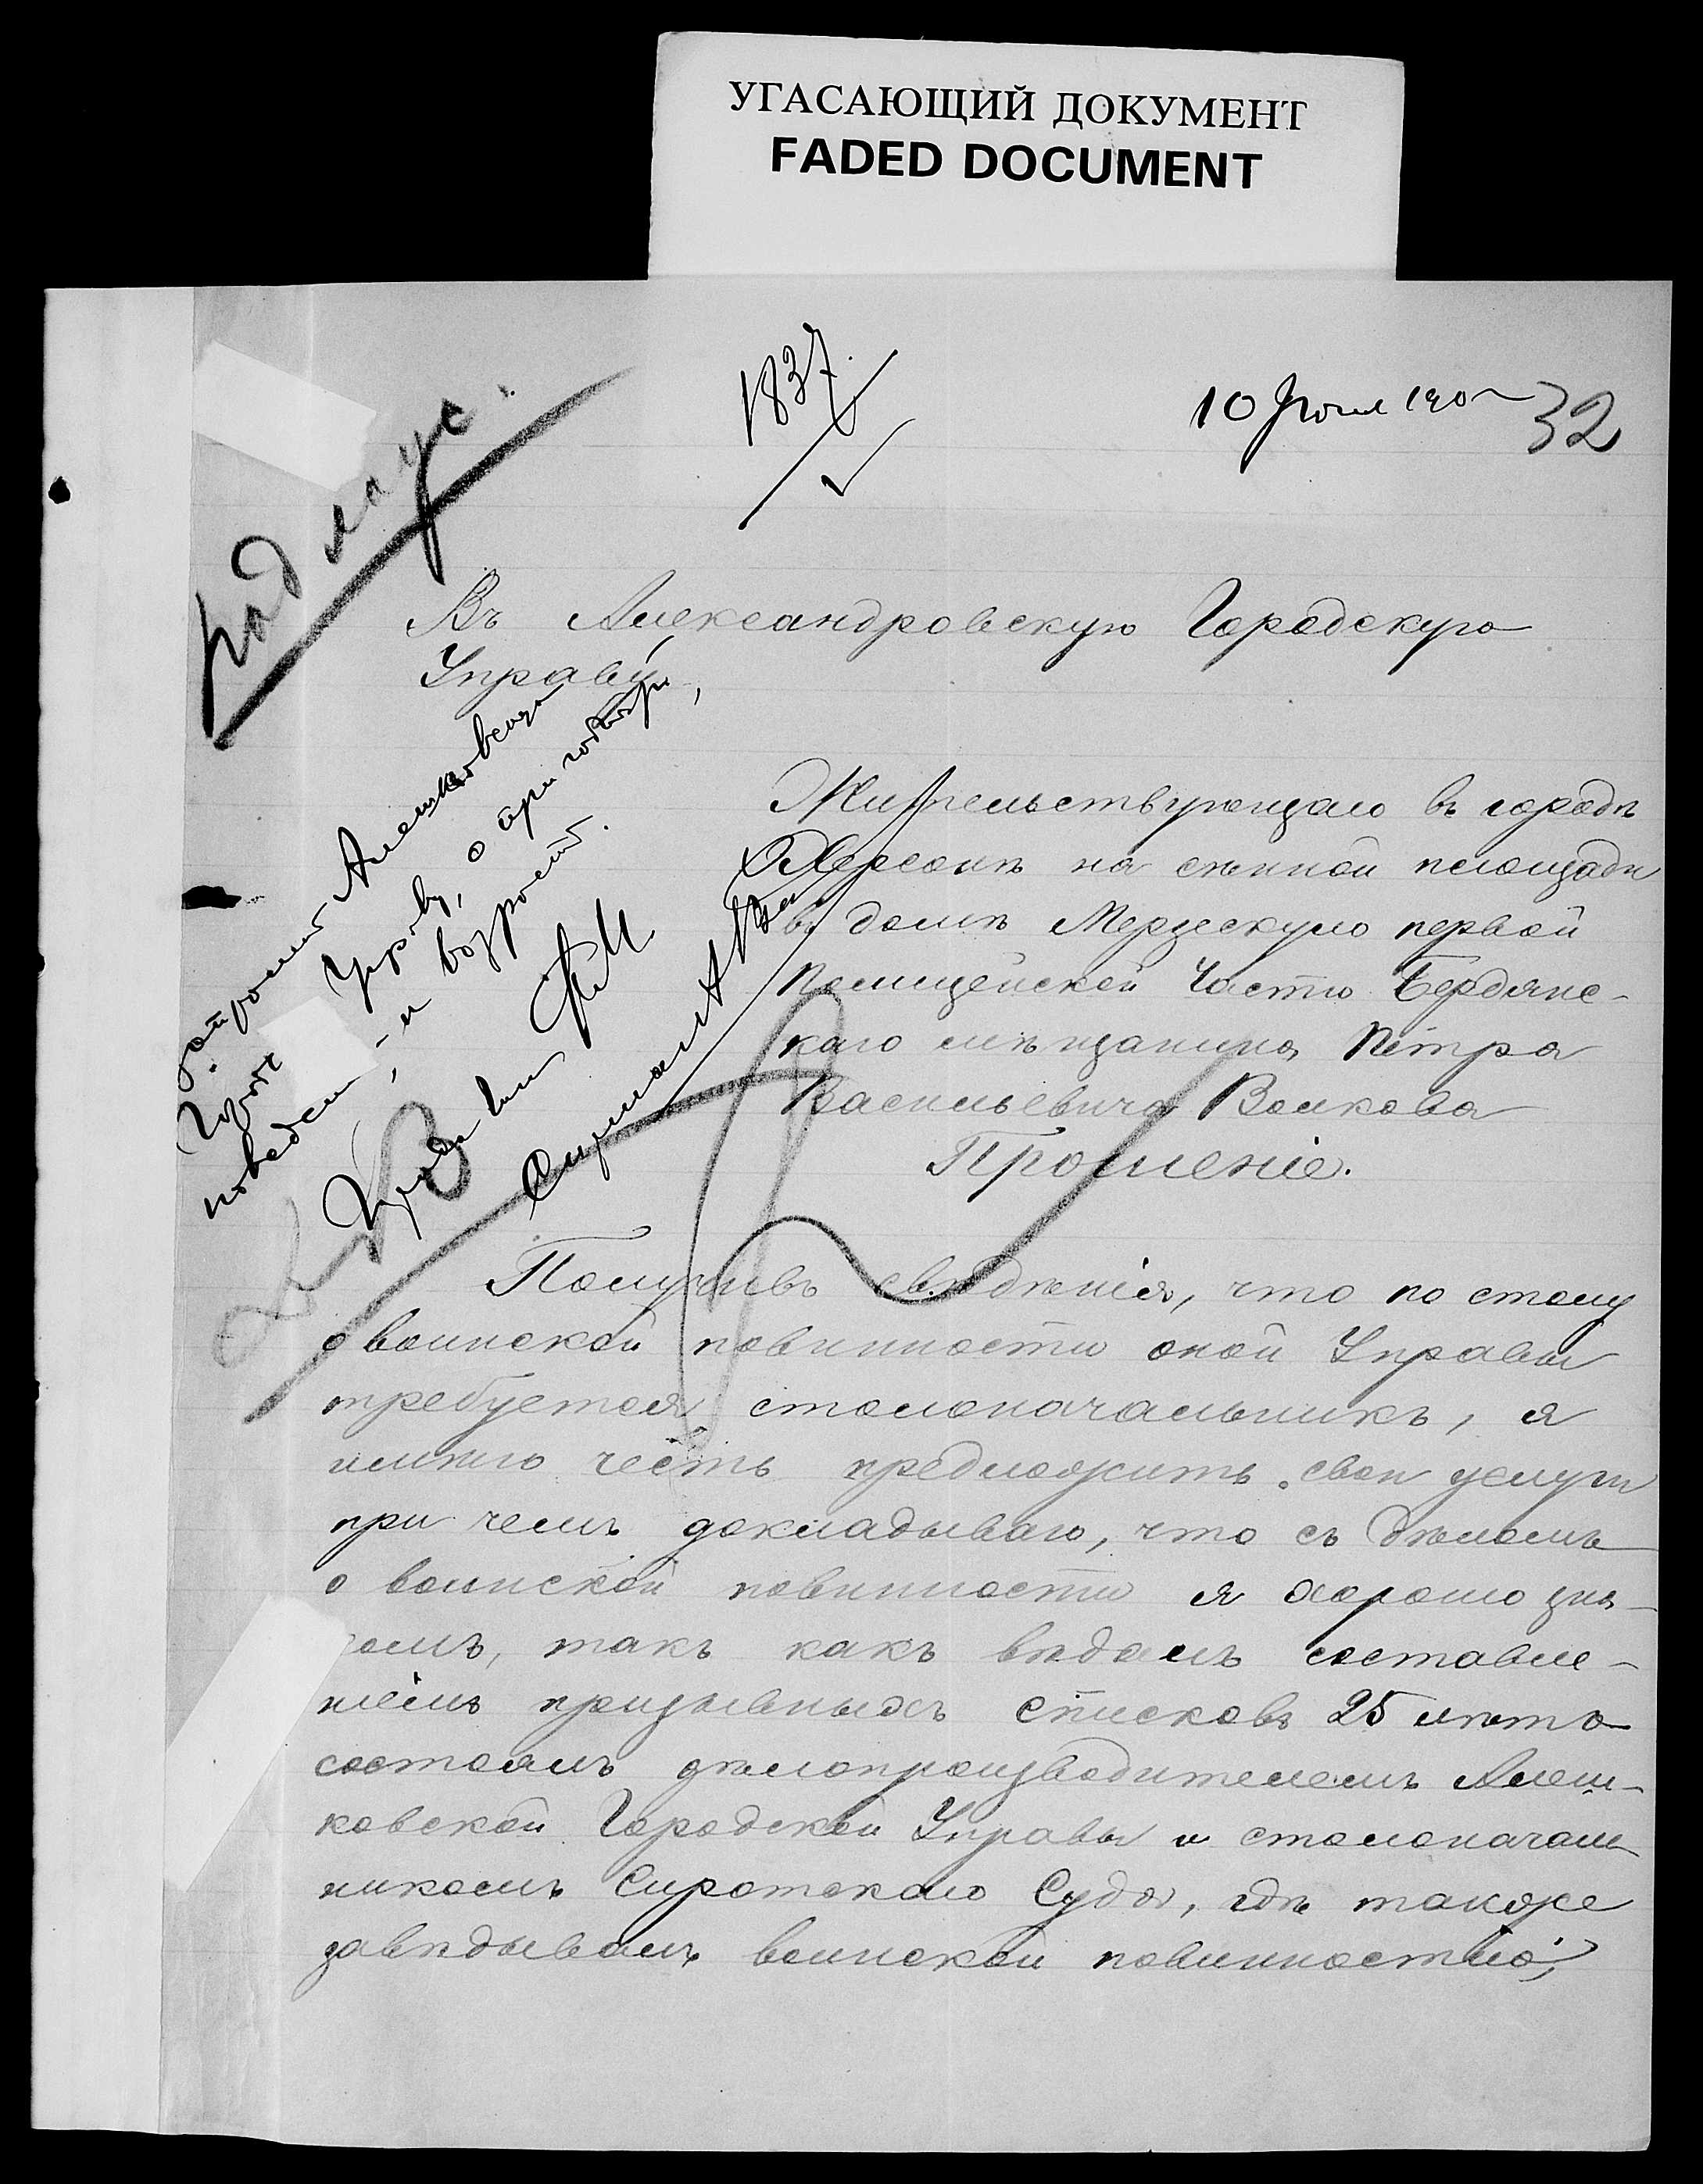 УГАСАЮЩИЙ ДОКУМЕНТ
FADED DOCUMENT
1837
10 32
Въ Александровскую Городскую
Управу,
Жительствующаго въ городѣ
Херсонѣ на сѣнной площади
въ домѣ первой
Полицейской Части Бердянс-
каго мѣщанина Петра
Васильевича Волкова
Прошеніе.
Алешковскую
Гор
Упр-ву, о
поведеніи и возрастѣ.
Получивъ свѣдѣнія, что по столу
о воинской повинности оной Управы
требуется столоначальникъ, я
имѣю честь предложить свои услуги
при чемъ докладываю, что съ дѣломъ
о воинской повинности я хорошо зна-
комъ, такъ какъ вѣдалъ составле-
ніемъ призывныхъ списковъ 25 лѣтъ
состоялъ дѣлопроизводителемъ Алеш-
ковской Городской Управы и столоначаль
никомъ Сиротскаго Суда, гдѣ также
завѣдывалъ воинской повинностью,